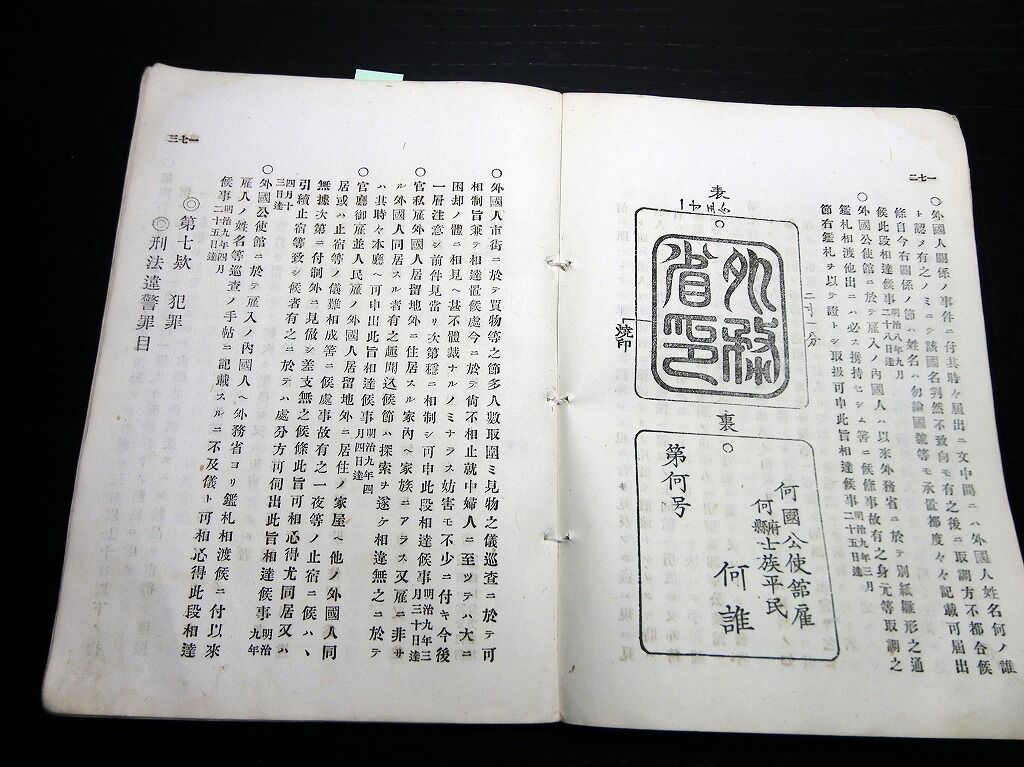 一七二
○外國人關係ノ事件ニ付其時々屆出ニ文中間ニハ外國人姓名何ノ誰
ト認メ有之ノミニテ該國名判然不致向モ有之後ニ取調方不都合候
條自今右關係ノ節ハ姓名ハ勿論國號等モ承置都度々々記載可屆出
候此段相達候事明治八年九月二十八日達
○外國公使館ニ於テ雇入ノ內國人ハ以來外務省ニ於テ別紙雛形之通
鑑札相渡他出ニハ必ス携持セシム筈ニ候條事故有之身元等取調之
節右鑑札ヲ以テ證トシ取扱可申此旨相達候事明治九年三月二十五日達
表
二寸一分
外務省印
燒印
裏
何國公使舘雇
何府縣士族平民
何誰
第何号
一七三
○外國人市街ニ於テ買物等之節多人數取圍ミ見物之儀巡査ニ於テ可
相制旨兼テ相達置候處今ニ於テ尙不相止就中婦人ニ至ツテハ大ニ
困却ノ體ニ相見ヘ甚不體裁ナルノミナラス妨害モ不少ニ付キ今後
一層注意シ前件見當リ次第穩ニ相制シ可申此段相達候事明治九年三月三十日達
○官私雇外國人居留地外ニ住居スル家內ヘ家族ニアラス又雇ニ非サ
ル外國人同居スル者有之趣聞込候節ハ探索ヲ遂ケ相違無之ニ於テ
ハ其時々本廳ヘ可申出此旨相達候事明治九年四月四日達
○官廳御雇並人民雇ノ外國人居留地外ニ居住ノ家屋ヘ他ノ外國人同
居或ハ止宿等ノ儀難相成筈ニ候處事故有之一夜等ノ止宿ニ候ハヽ
無據次第ニ付制外ニ見倣シ差支無之候條此旨可相心得尤同居又ハ
引續止宿等致シ候者有之ニ於テハ處分方可伺出此旨相達候事明治九年
四月十三日達
○外國公使館ニ於テ雇入ノ內國人ヘ外務省ヨリ鑑札相渡候ニ付以來
雇人ノ姓名等巡查ノ手帖ニ記載スルニ不及儀ト可相心得此段相達
候事明治九年四月二十五日達
◎第七欵 犯罪
◎刑法違警罪目